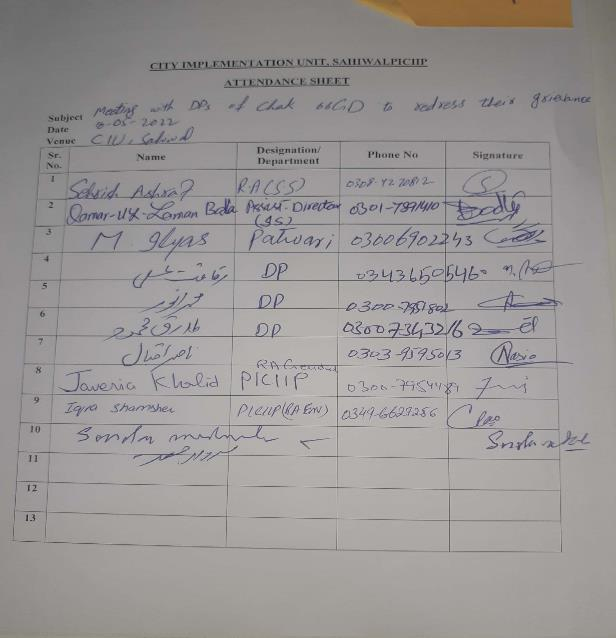 CITY IMPLEMENTATION UNIT, SAHIWAL PICIIP
ATTENDANCE SHEET
Subject Meeting with DPs of Chak 66GD to redress their grievance
Date -05-2022
Venue CIU, Sahiwal
Sr. No. Name Designation/ Department Phone No Signature
1 Sehrish Ashraf RA(SS)
2 Qamar-Ul-Zaman Assist-Director 0301-7891410
3 M. Ilyas Patwari 03006902243
4 رفاقت علی DP 03436505460
5 محمد انور DP 0300-7951802
6 طارق محمود DP 03007343216
7 ناصر اقبال 0303-9595013
8 Javeria Khalid PICIIP 0300-7954489
9 Iqra Shamsher PICIIP(RA Env) 0349-6629286
10
11
12
13